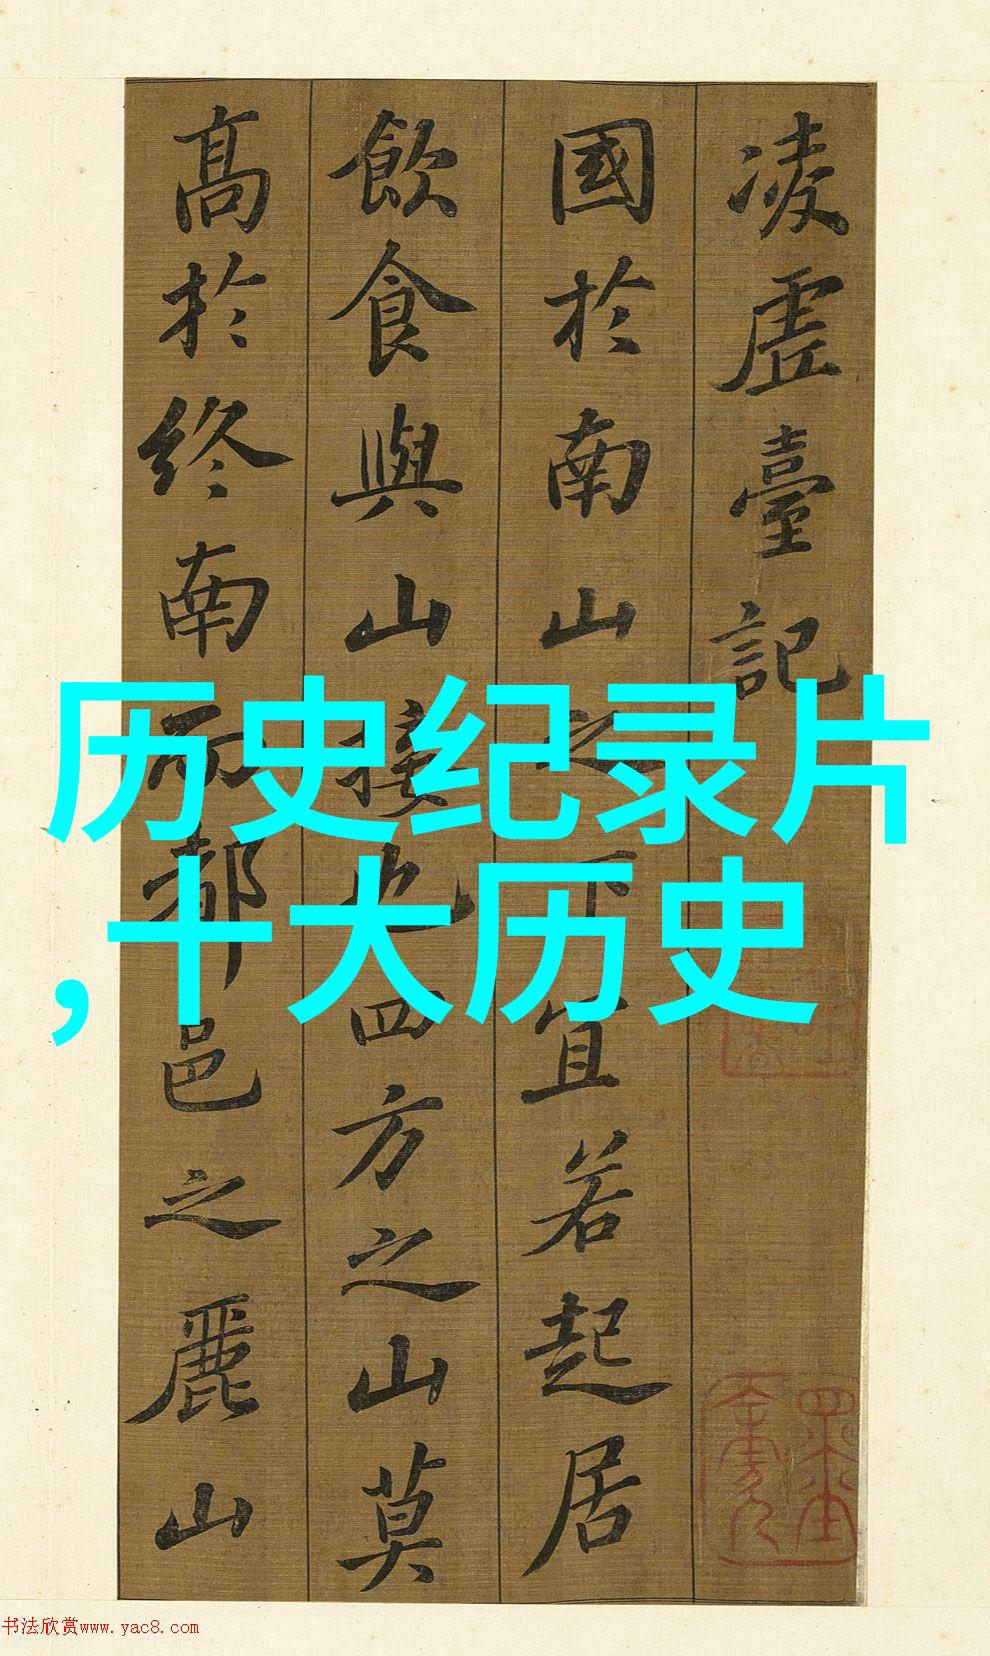 凌虛臺記
國於南山之下宜若起居
飲食與山接也四方之山莫
高於終南而都邑之麗山
历史纪录片
,十大历史
书法欣赏www.yac8.com